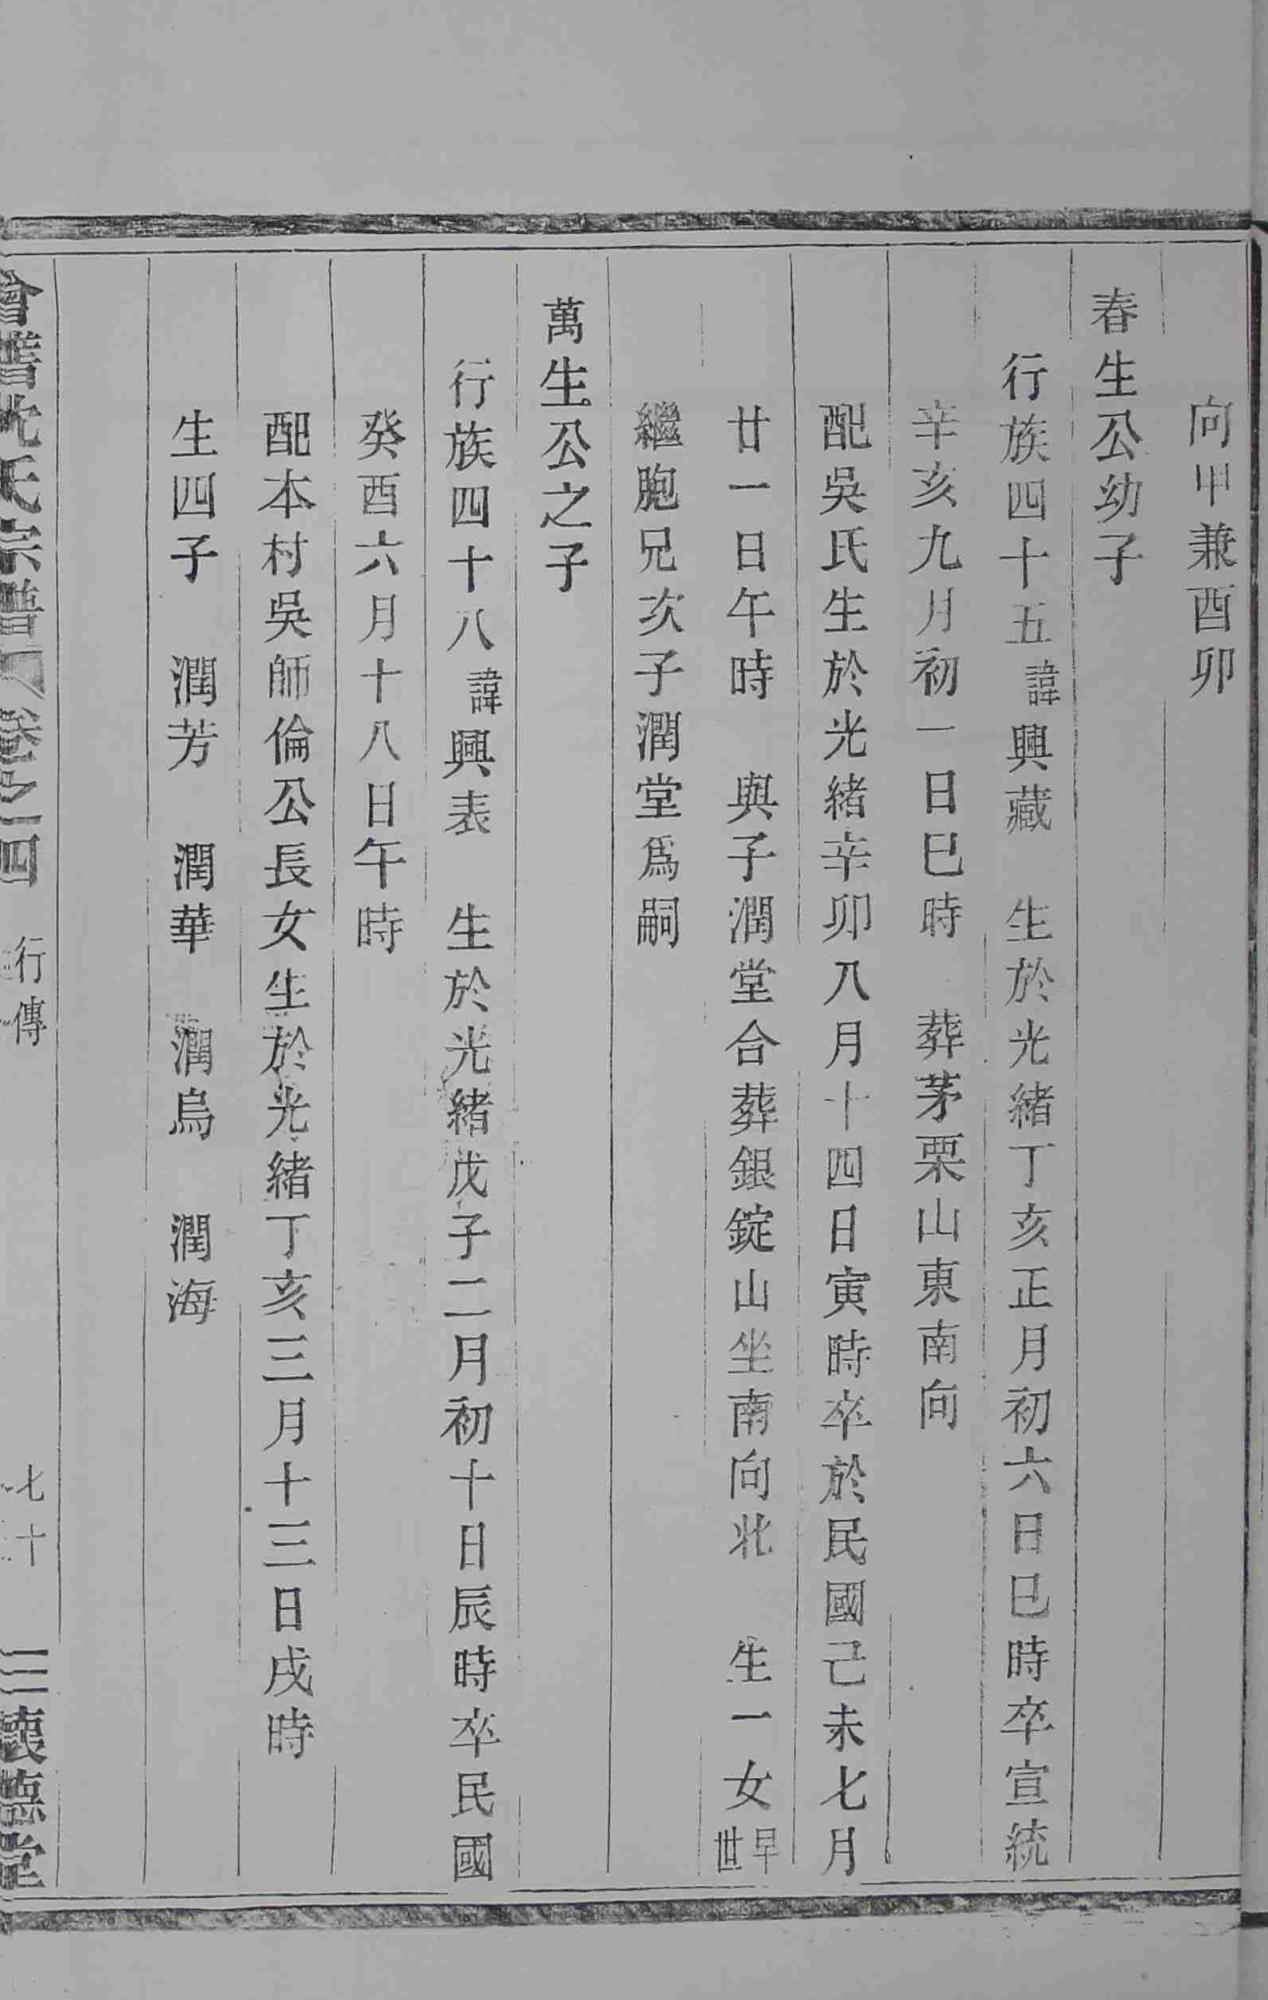 向甲兼酉卯
春生公幼子
行族四十五諱興藏　生於光緒丁亥正月初六日巳時卒宣統
辛亥九月初一日巳時　葬茅栗山東南向
配吳氏生於光緒辛卯八月十四日寅時卒於民國己未七月
廿一日午時　與子潤堂合葬銀錠山坐南向北　生一女早世
繼胞兄次子潤堂爲嗣
萬生公之子
行族四十八諱興表　生於光緒戊子二月初十日辰時卒民國
癸酉六月十八日午時
配本村吳師倫公長女生於光緒丁亥三月十三日戌時
生四子　潤芳　潤華　潤烏　潤海
會稽沈氏宗譜　卷之四　行傳　七十　懷德堂